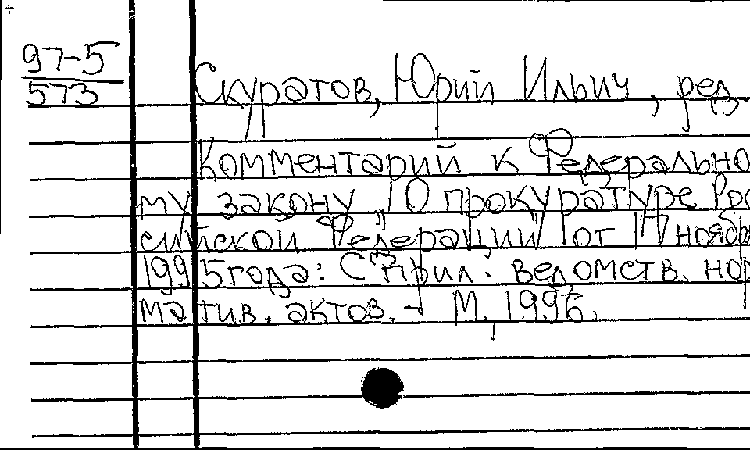 97-5
573
Скуратов, Юрий Ильич, ред.
Комментарий к Федерально-
му закону "О прокуратуре Рос-
сийской Федерации" от 17 ноября
1995 года: С прил. ведомств. нор-
матив. актов. - М., 1996.